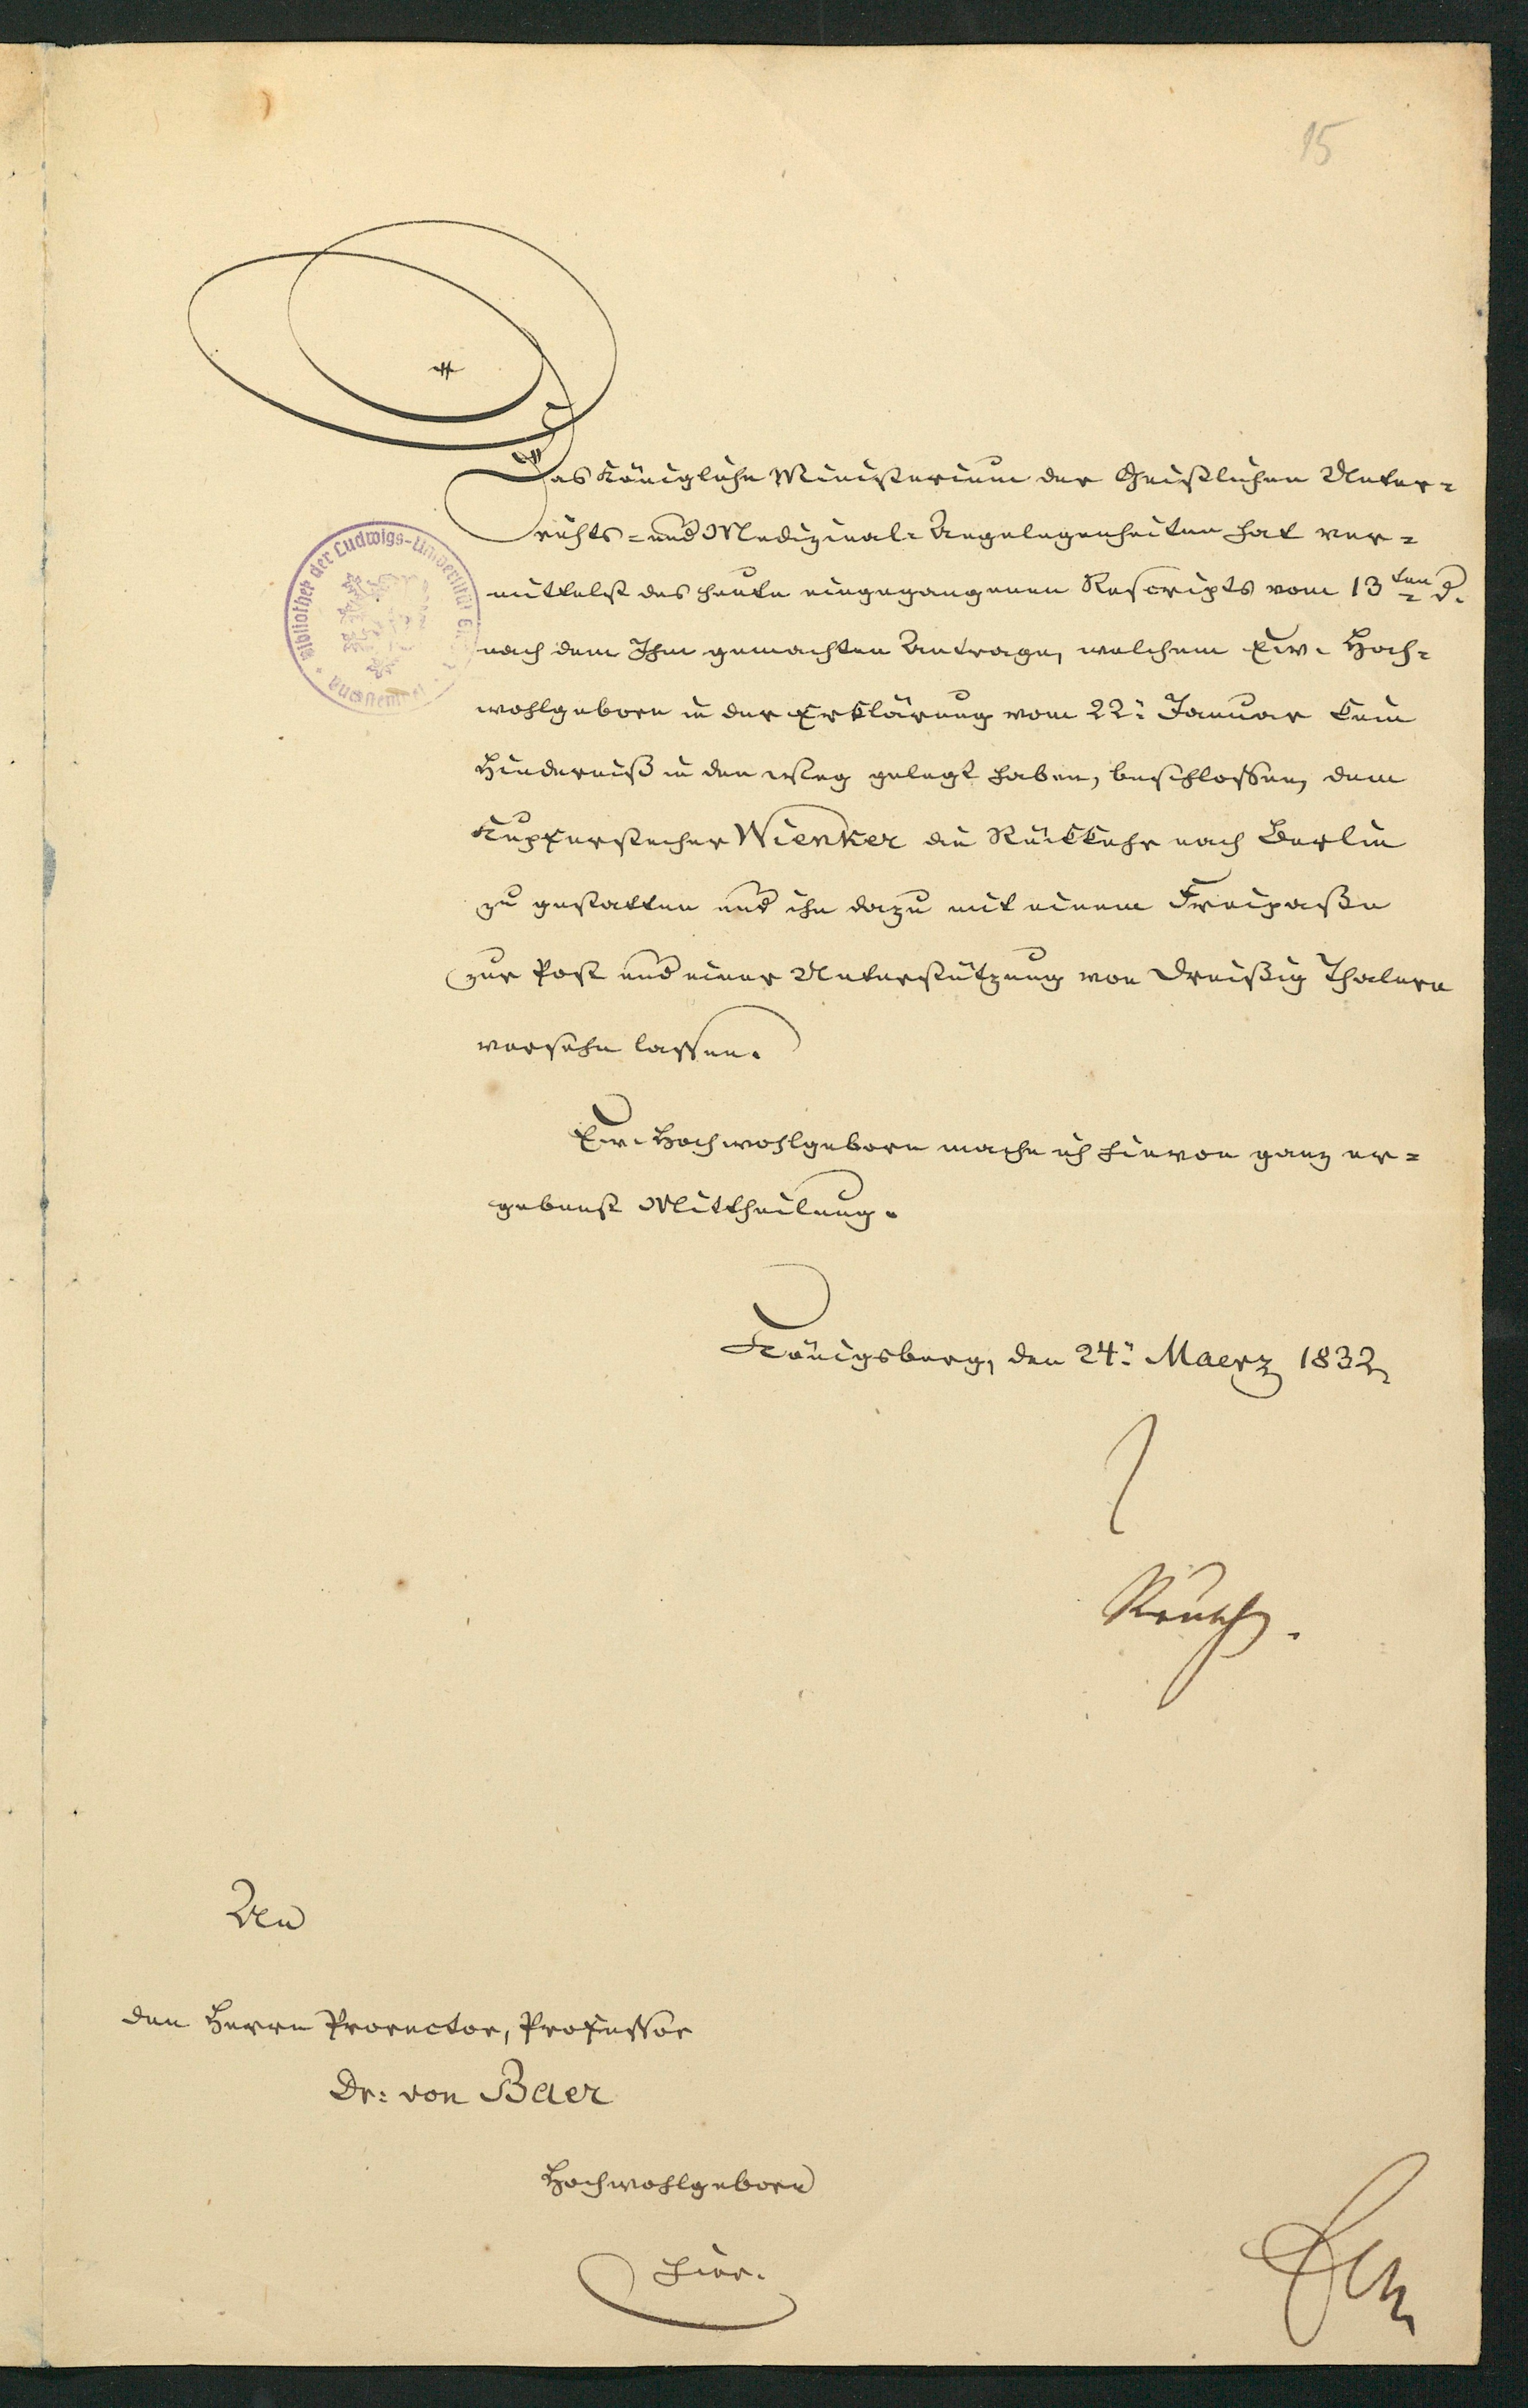 15
Das Königliche Ministerium der Geistlichen Unter-
richts- und Medizinal-Angelegenheiten hat ver-
mittelst des heute eingegangenen Rescripts vom 13ten d.
nach dem Ihm gemachten Antrage, welchem Ew. Hoch-
wohlgeboren in der Erklärung vom 22: Januar kein
Hinderniß in den Weg gelegt haben, beschlossen, dem
Kupferstecher Wienker die Rückkehr nach Berlin
zu gestatten und ihn dazu mit einem Freipaße
zur Post und einer Unterstützung von Dreißig Thalern
versehn lassen.
Ew. Hochwohlgeboren mache ich hievon ganz er-
gebenst Mittheilung.
Königsberg, den 24: Maerz 1832
Reusch.
An
den Herrn Prorector, Professor
Dr: von Baer
Hochwohlgeboren
hier.
Bibliothek der Ludwigs-Universität